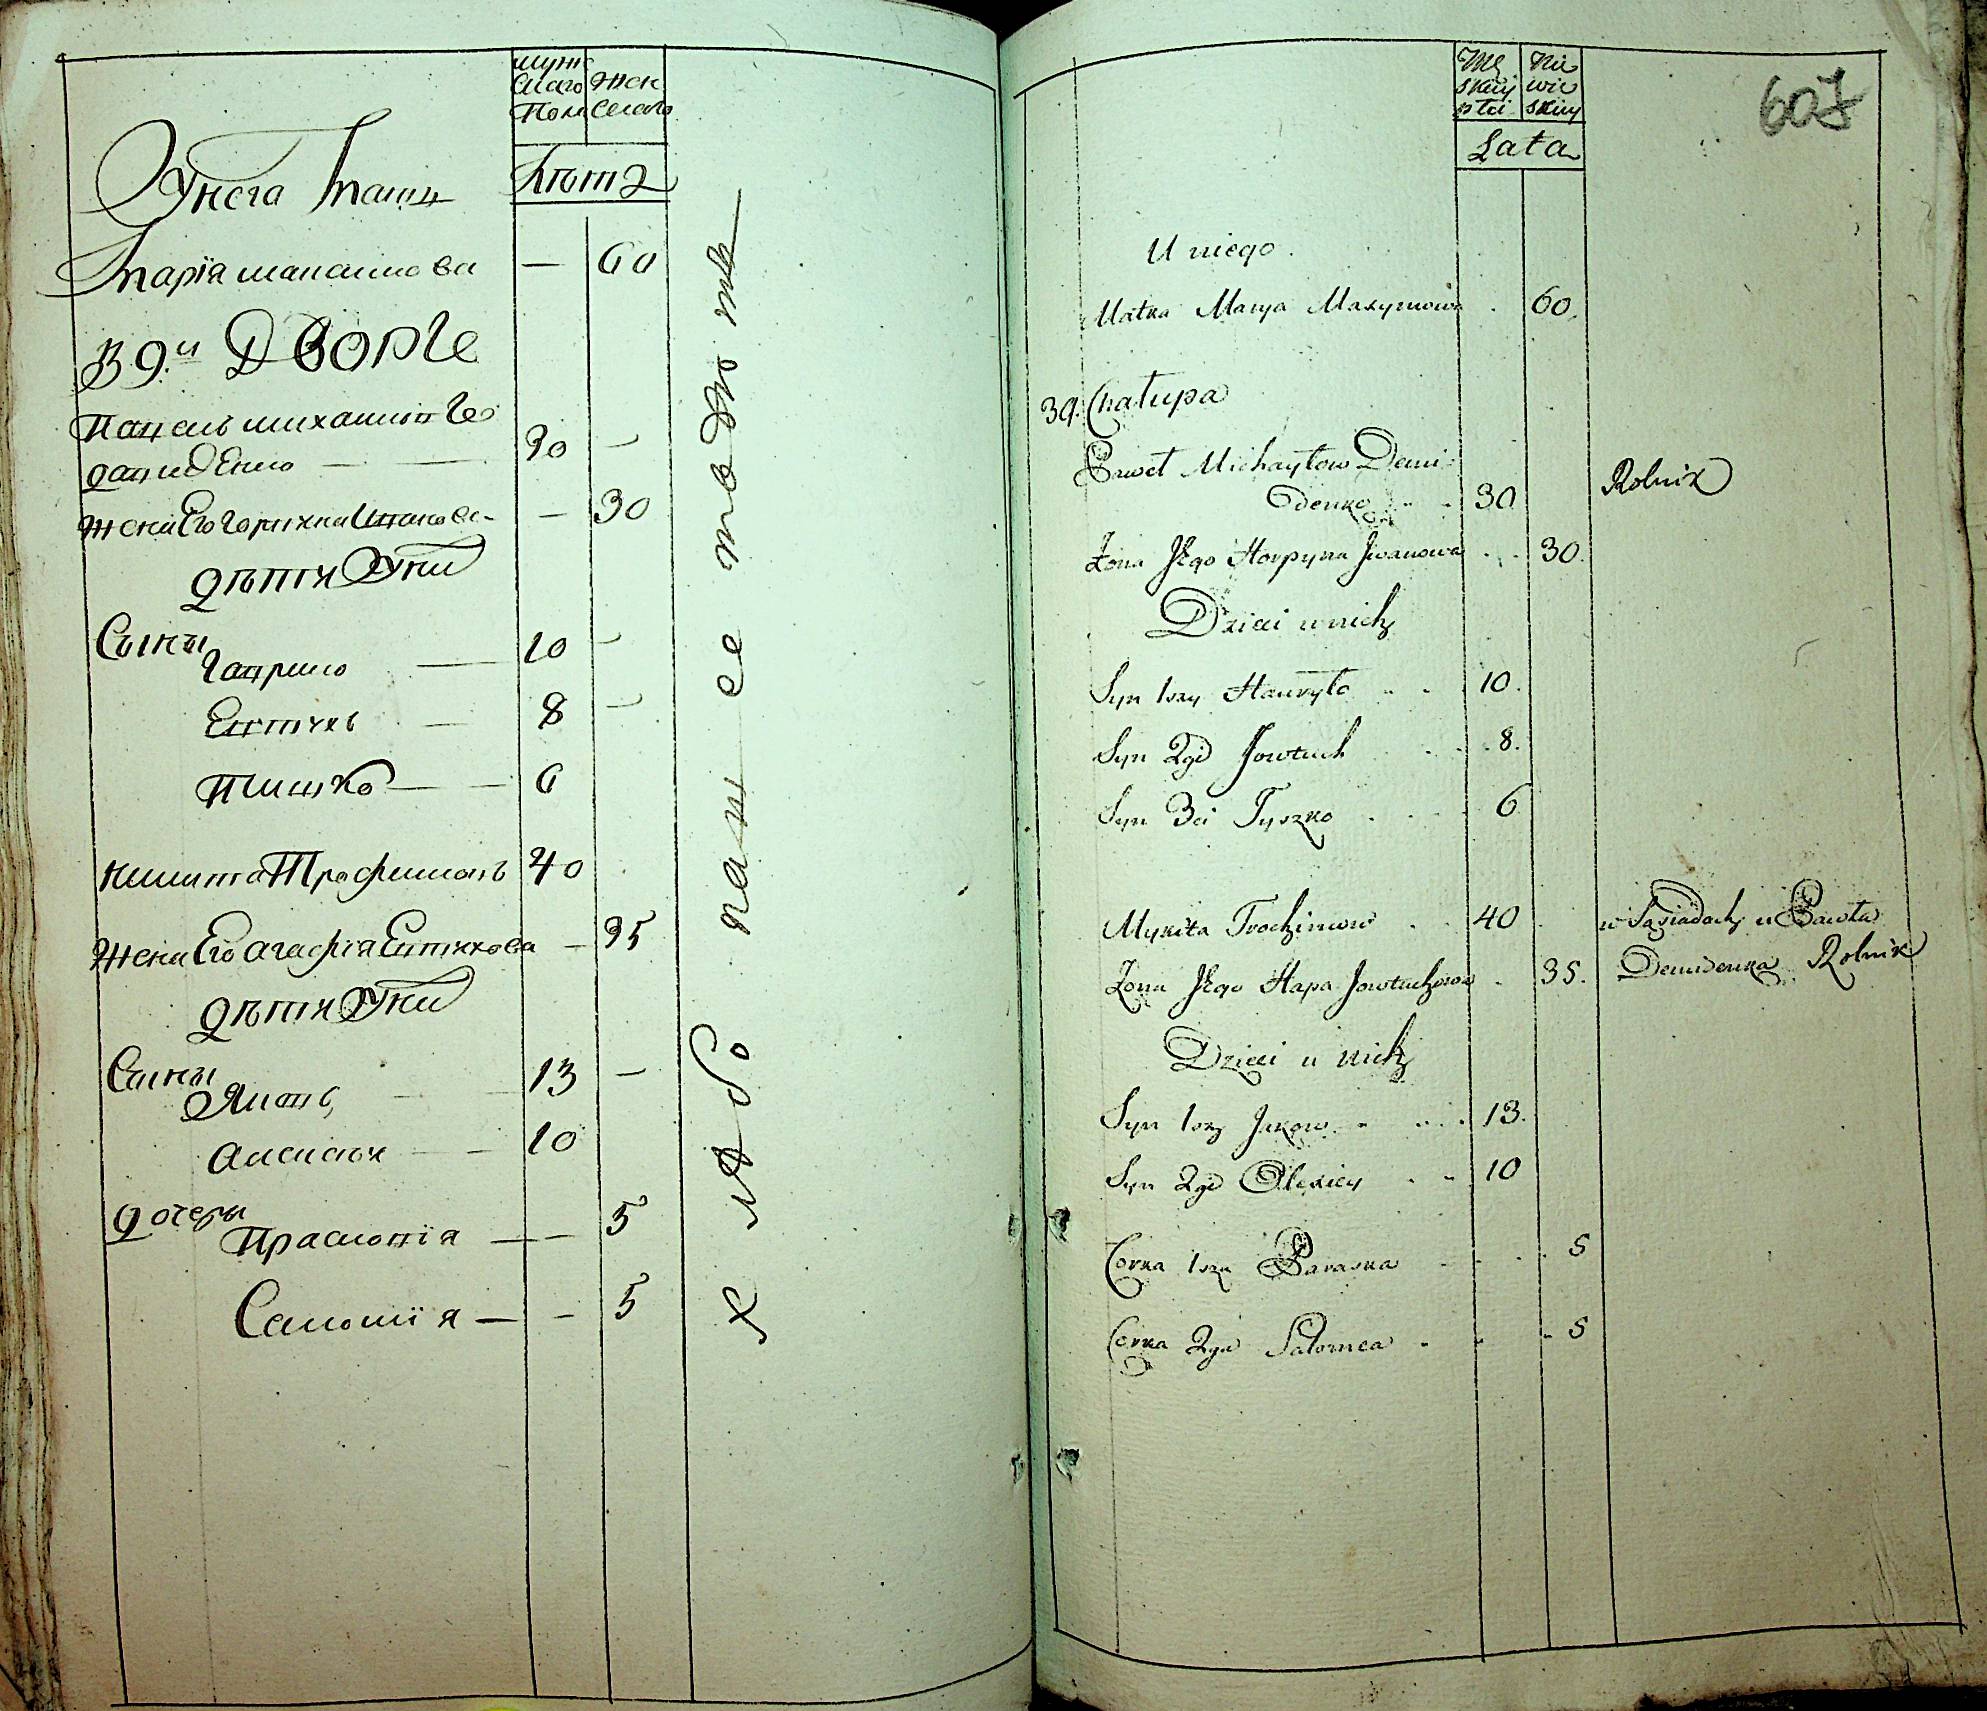 муж
скаго
Пола
Жен
скаго
Лѣта
У него мать
Марїя макъсимова
60
В 9.м Дворѣ
Павелъ михаиловъ де
30
мидЕнко
жена Его горпина Иванова
30
дѣти У ни
Сыны
Гаврило
10
Евтухъ
8
Тишко
6
микита Трофимовъ
40
Жена Его агафїя Евтухова
35
дѣти У ни
Сыны
Яковъ
13
алексей
10
дочеры
Прасковїя
5
Саломїя
5
хлѣбопашество тоже
607
Mę
skiey
płci
Nie
wie
skiey
Lata
U niego
Matka Marya Maxymowa 60.
39. Chałupa
Paweł Michayłow Demi
denko 30 Rolnik
Żona Jego Horpyna Jwanowa 30.
Dzieci u nich
Syn 1szy Hawryło 10.
Syn 2gi Jowtuch 8.
Syn 3ci Tyszko 6
Mykita Trochimow 40 w Sąsiadach u Pawła
Żona Jego Hapa Jowtuchowa 35. Demidenka Rolnik
Dzieci u nich
Syn 1szy Jakow 13.
Syn 2gi Olexiey 10
Corka 1sza Paraska 5
Corka 2ga Salomea 5